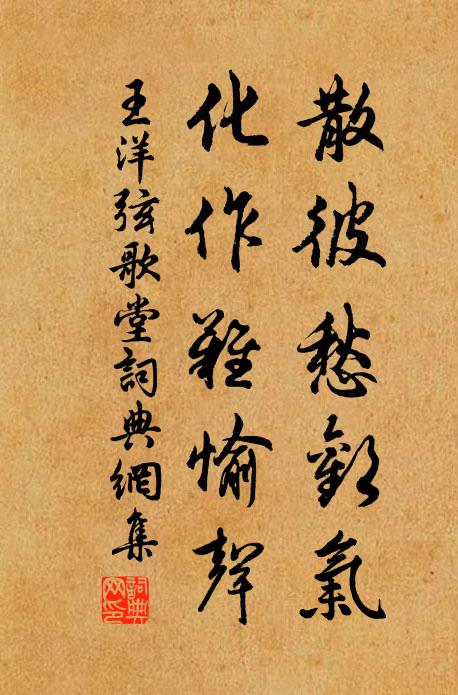 散彼愁歎氣
化作難愉聲
王洋弦歌堂詞典網集
詞典網印